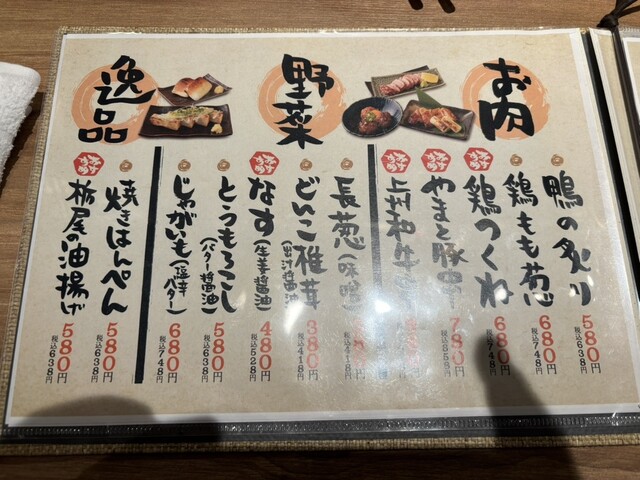 お肉
鴨の炙り
580円
税込638円
鶏もも葱
680円
税込748円
鶏つくね
680円
税込748円
やまと豚
780円
税込858円
上州和牛
野菜
長葱(味噌)
税込418円
どんこ椎茸
(出汁醤油)
380円
税込418円
なす(生姜醤油)
480円
税込528円
とうもろこし
(バター醤油)
580円
税込638円
じゃがいも(塩辛バター)
680円
税込748円
逸品
焼きはんぺん
580円
税込638円
栃尾の油揚げ
580円
税込638円